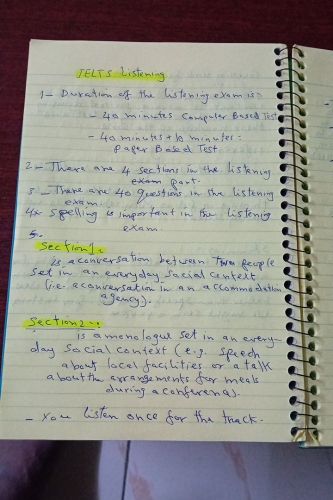 IELTS Listening
1- Duration of the listening exam is:
- 40 minutes Computer Based Test
- 40 minutes + 10 minutes:
Paper Based Test
2- There are 4 sections in the listening
exam part.
3- There are 40 questions in the listening
exam.
4- Spelling is important in the listening
exam.
5.
Section 1:
is a conversation between Two people
set in an everyday social context
(i.e. a conversation in an accommodation
agency).
Section 2:
is a monologue set in an every-
day social context (e.g. speech
about local facilities or a talk
about the arrangements for meals
during a conference).
- You listen once for the track.